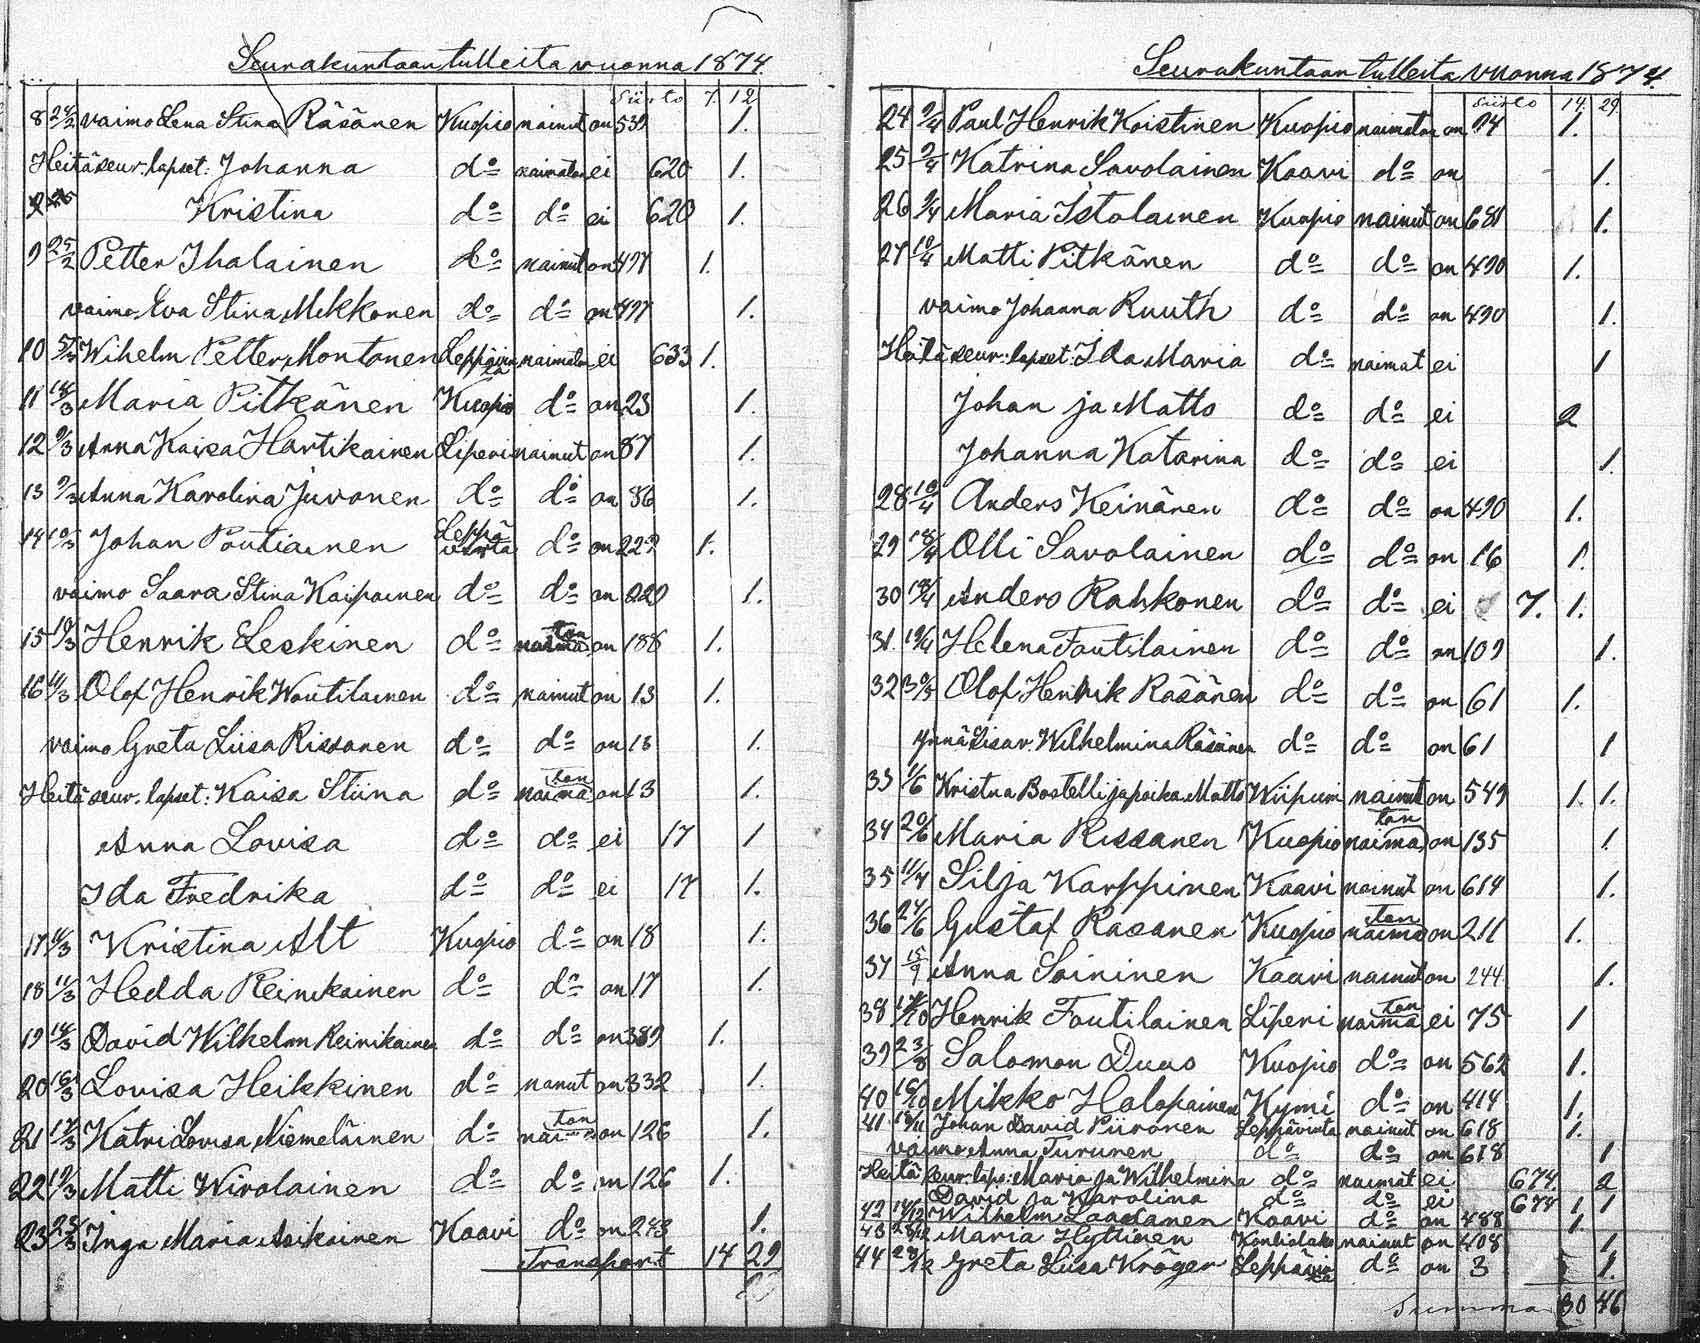 Seurakuntaan tulleita vuonna 1874.
Siirto 7. 12
8 24/2 vaimo Lena Stina Räsänen Kuopio nainut on 539 1.
Heitä seur. lapset: Johanna do naimaton ei 620 1.
Kristina do do ei 620 1.
9 25/2 Petter Ihalainen do nainut on 497 1.
vaimo Eva Stina Mikkonen do do on 497 1.
10 5/3 Wihelm Petter Montonen Leppävirta naimaton ei 633 1.
11 18/3 Maria Pitkänen Kuopio do on 23 1.
12 9/3 Anna Kaisa Hartikainen Liperi nainut on 87 1.
13 9/3 Anna Karolina Juvonen do do on 86 1.
14 10/3 Johan Poutiainen Leppävirta do on 229 1.
vaimo Saara Stina Kaipainen do do on 229 1.
15 10/3 Henrik Leskinen do naimaton on 188 1.
16 11/3 Olof Henrik Woutilainen do nainut on 13 1.
vaimo Greta Liisa Rissanen do do on 13 1.
Heitä seur. lapset: Kaisa Stiina do naimaton on 13 1.
Anna Lovisa do do ei 17 1
Ida Fredrika do do ei 17 1.
17 11/3 Kristina Alt Kuopio do on 18 1.
18 11/3 Hedda Reinikainen do do on 17 1.
19 14/3 David Wilhelm Reinikainen do do on 389 1.
20 16/3 Lovisa Heikkinen do nanut on 332 1.
21 17/3 Katri Lovisa Niemeläinen do on 126 1.
22 19/3 Matti Wirolainen do do on 126 1.
23 25/3 Inga Maria Asikainen Kaavi do on 243 1.
Transport 14 29
Seurakuntaan tulleita vuonna 1874.
Siirto 14. 29
24 9/4 Paul Henrik Koistinen Kuopio naimaton on 94 1.
25 9/4 Katrina Savolainen Kaavi do on 1.
26 9/4 Maria Istolainen Kuopio nainut on 681 1.
27 10/4 Matti Pitkänen do do on 490 1.
vaimo Johanna Ruuth do do on 490 1.
Heitä seur. lapset: Ida Maria do naimat ei 1
Johan ja Matts do do ei 2
Johanna Katarina do do ei 1.
28 10/4 Anders Keinänen do do on 490 1.
29 18/4 Olli Savolainen do do on 16 1.
30 19/4 Anders Rahkonen do do ei 7. 1.
31. 19/4 Helena Foutilainen do do on 109 1.
32 30/5 Olof Henrik Räsänen do do on 61 1.
Wilhelmina Räsänen do do on 61 1
33 1/6 Kristna Bostelli ja poika Matts Wiipuri nainut on 549 1. 1.
34 20/6 Maria Rissanen Kuopio naimaton on 135 1.
35 11/7 Silja Karppinen Kaavi nainut on 614 1.
36 27/6 Gustaf Räsänen Kuopio naimaton on 211 1.
37 15/9 Anna Soininen Kaavi nainut on 244 1.
38 Henrik Foutilainen Liperi naimaton ei 75 1
39 23/8 Salomon Duus Kuopio do on 562 1.
40 16/10 Mikko Halopainen Kymi do on 414 1.
41 18/11 Johan David Piironen Leppävirta nainut on 618 1.
vaimo Anna Turunen do do on 618 1
Heitä seur. laps: Maria ja Wilhelmina do naimat ei 674. 2
David ja Karolina do do ei 674 1 1
42 14/12 Wilhelm Laatanen Kaavi do on 488 1.
43 28/12 Maria Hyttinen Kontiolaks nainut on 408 1
44 28/12 Greta Liisa Kröger Leppävirta do on 3 1.
Summa 30 46